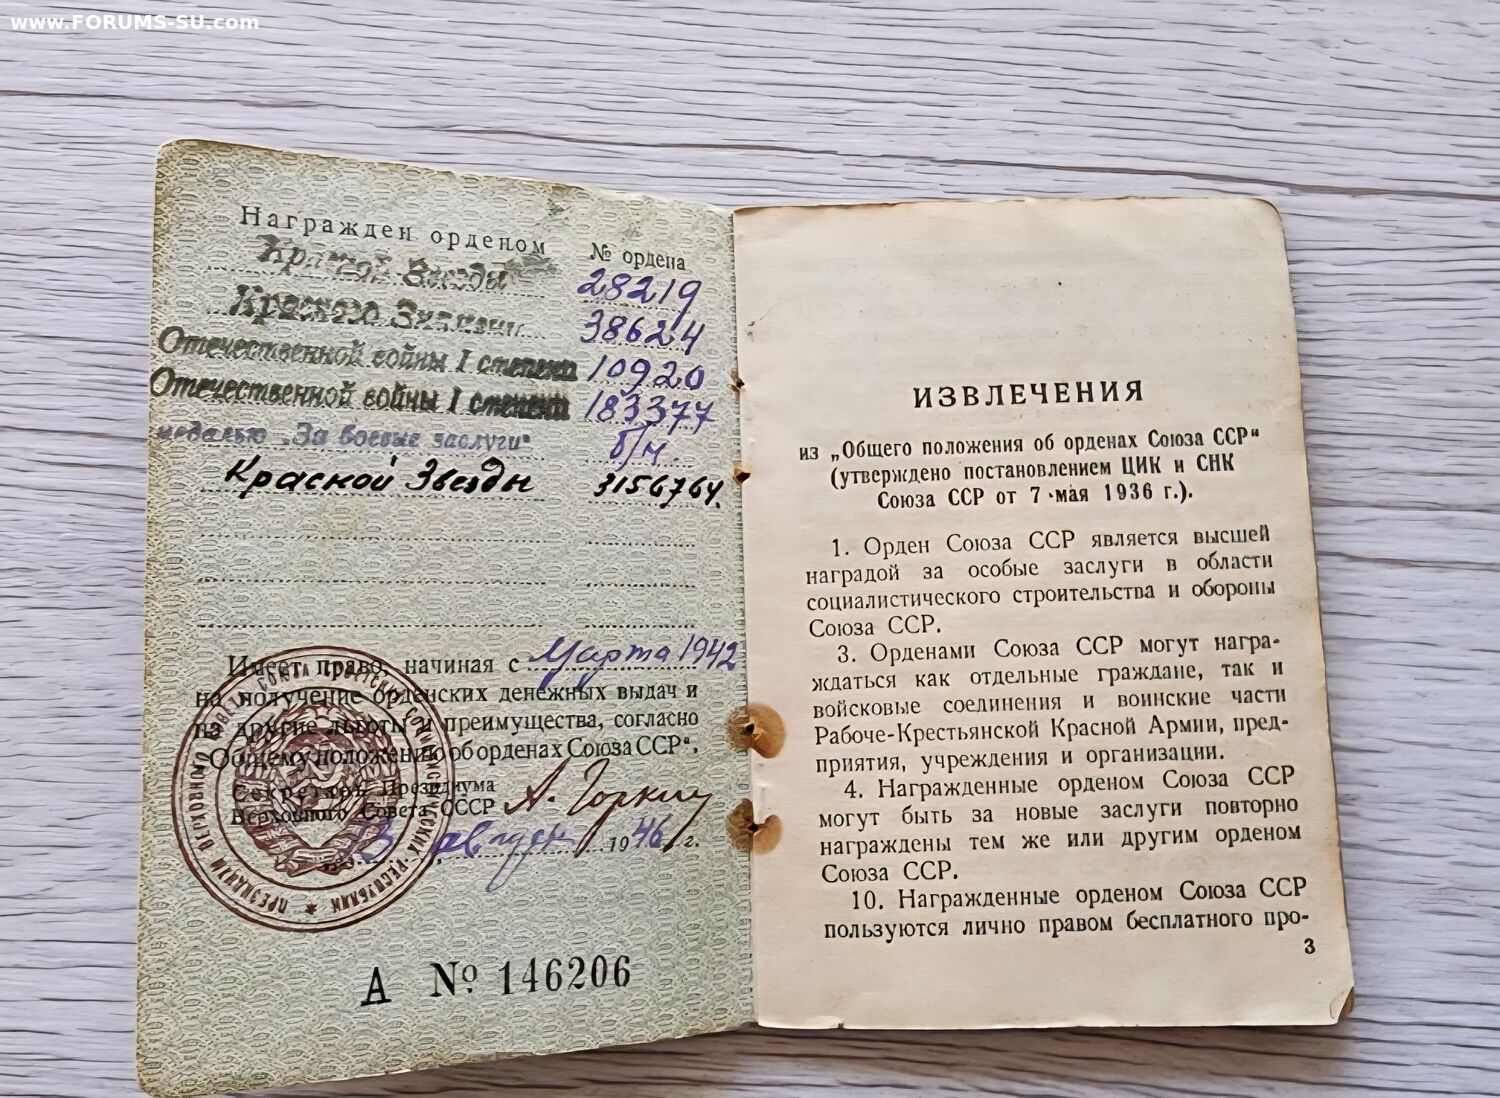 www.FORUMS-SU.com
Награжден орденом
№ ордена
Красной Звезды 28219
Красного Знамени 38624
Отечественной войны I степени 10920
Отечественной войны I степени 183377
медалью „За боевые заслуги" б/н.
Красной Звезды 3156764.
Имеет право, начиная с Марта 1942
на получение орденских денежных выдач и
на другие льготы и преимущества, согласно
„Общему положению об орденах Союза ССР".
Секретарь Президиума
Верховного Совета СССР А. Горкин
3 август 1946 г.
ПРЕЗИДИУМ ВЕРХОВНОГО СОВЕТА СОЮЗА СОВЕТСКИХ СОЦИАЛИСТИЧЕСКИХ РЕСПУБЛИК
А № 146206
ИЗВЛЕЧЕНИЯ
из „Общего положения об орденах Союза ССР"
(утверждено постановлением ЦИК и СНК
Союза ССР от 7 мая 1936 г.).
1. Орден Союза ССР является высшей
наградой за особые заслуги в области
социалистического строительства и обороны
Союза ССР.
3. Орденами Союза ССР могут награ-
ждаться как отдельные граждане, так и
войсковые соединения и воинские части
Рабоче-Крестьянской Красной Армии, пред-
приятия, учреждения и организации.
4. Награжденные орденом Союза ССР
могут быть за новые заслуги повторно
награждены тем же или другим орденом
Союза ССР.
10. Награжденные орденом Союза ССР
пользуются лично правом бесплатного про-
3